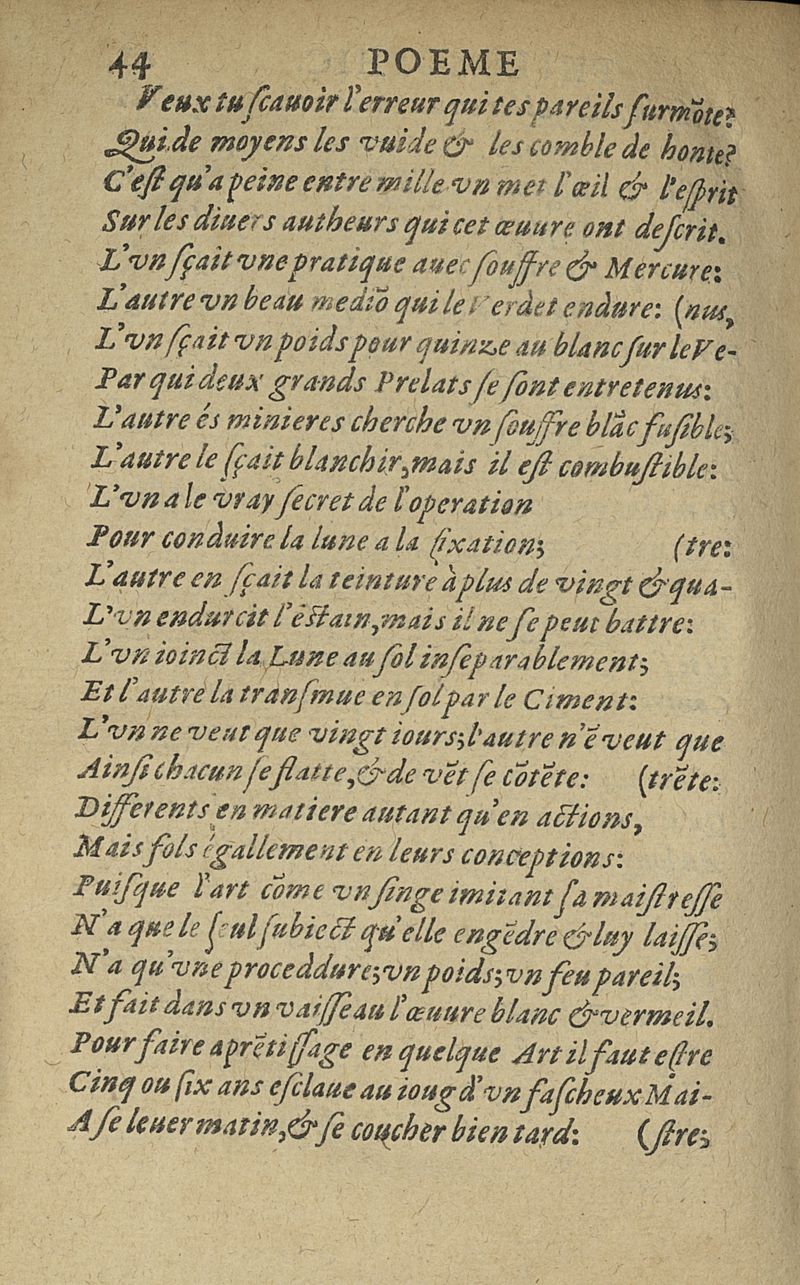 44 POEME
Veux tu ſcauoir l'erreur qui tes pareils ſurmõte?
Qui de moyens les vuide & les comble de honte?
C'eſt qu'a peine entre mille vn met l'œil & l'eſprit
Sur les diuers autheurs qui cet œuure ont deſcrit.
L'vn ſçait vne pratique auec ſouffre & Mercure:
L'autre vn beau mediõ qui le Verdet endure: (nus,
L'vn ſçait vn poids pour quinze au blanc ſur le Ve-
Par qui deux grands Prelats ſe ſont entretenus:
L'autre és minieres cherche vn ſouffre blãc fuſible;
L'autre le ſçait blanchir, mais il eſt combuſtible:
L'vn a le vray ſecret de l'operation
Pour conduire la lune a la fixation; (tre:
L'autre en ſçait la teinture à plus de vingt & qua-
L'vn endurcit l'èſtain, mais il ne ſe peut battre:
L'vn ioinct la Lune au ſol inſeparablement;
Et l'autre la tranſmue en ſol par le Ciment:
L'vn ne veut que vingt iours; l'autre n'ẽ veut que
Ainſi chacun ſe flatte, & de vẽt ſe cõtẽte: (trẽte:
Differents en matiere autant qu'en actions,
Mais fols égallement en leurs conceptions:
Puiſque l'art cõme vn ſinge imitant ſa maiſtreſſe
N'a que le ſeul ſubiect qu'elle engẽdre & luy laiſſe;
N'a qu'vne proceddure; vn poids; vn feu pareil;
Et fait dans vn vaiſſeau l'œuure blanc & vermeil.
Pour faire aprẽtiſſage en quelque Art il faut eſtre
Cinq ou ſix ans eſclaue au ioug d'vn faſcheux Mai-
A ſe leuer matin, & ſe coucher bien tard: (ſtre;